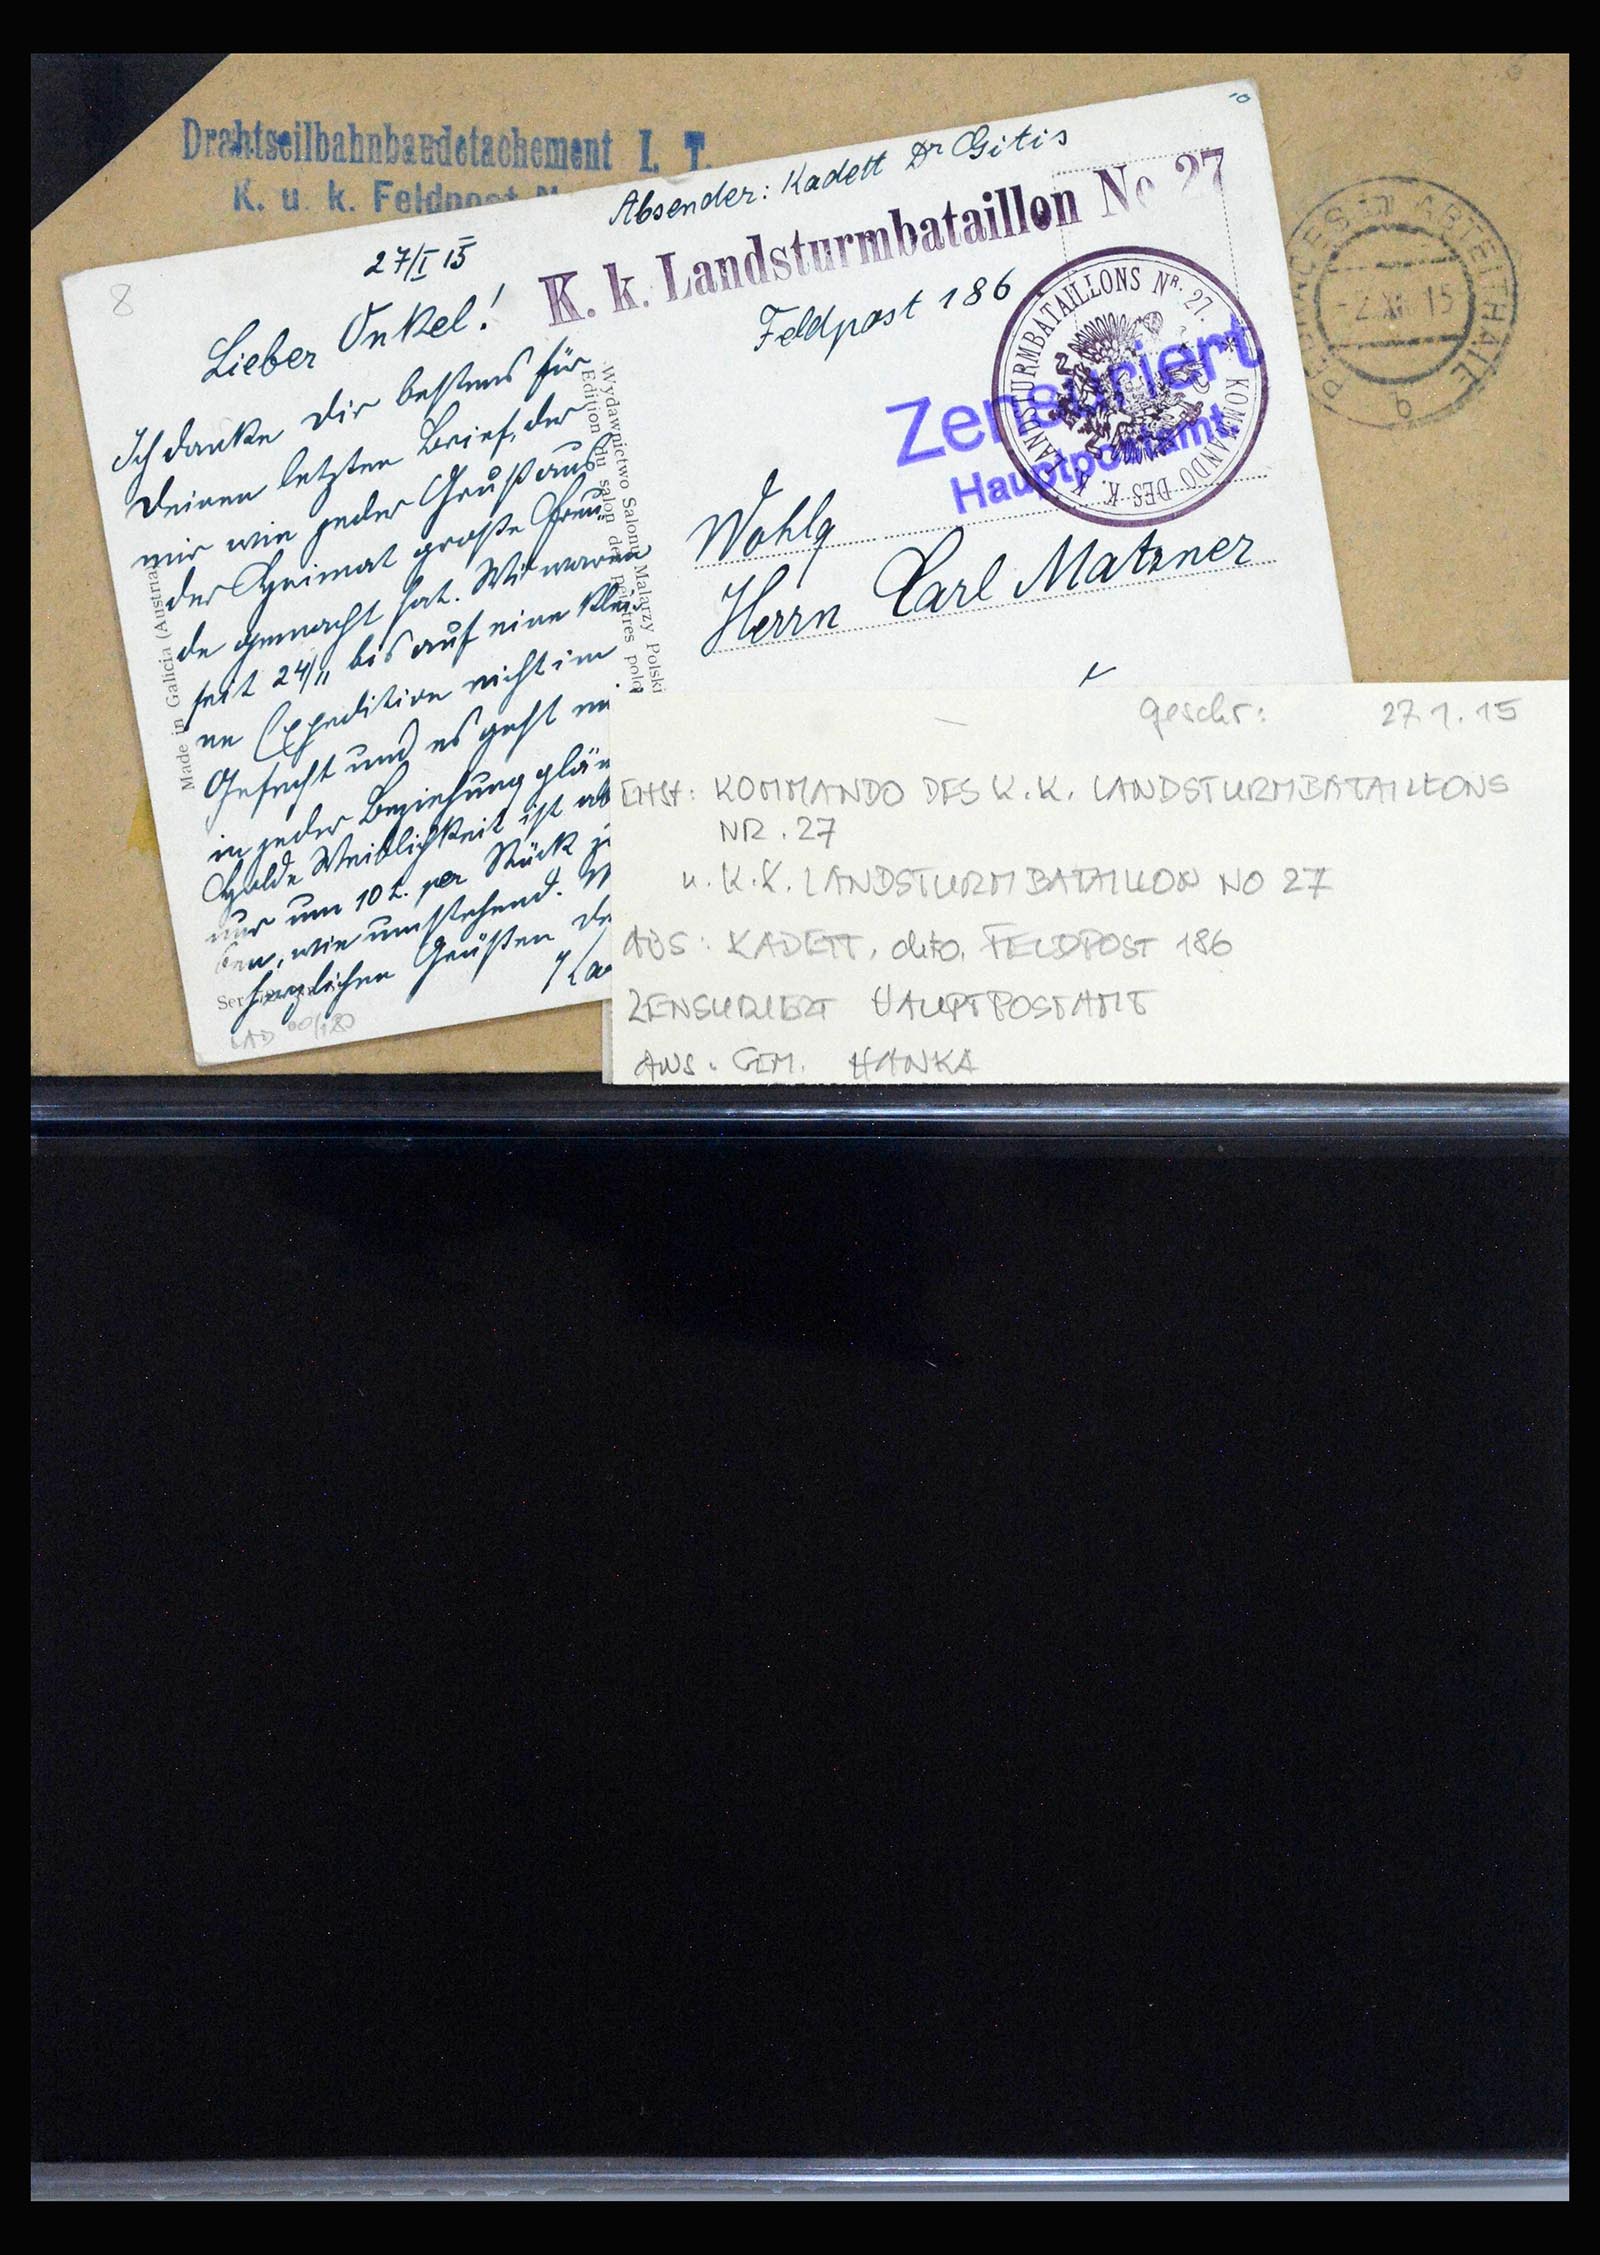 Drahtseilbahnbaudetachement I. T.
K. u. k. Feldpost N
Absender: Kadett Dr Gitis
K. k. Landsturmbataillon No 27
Feldpost 186
KOMMANDO DES K. K. LANDSTURMBATAILLONS Nr. 27.
Zensuriert
Hauptpostamt.
-2.XI.15
9
8
27/I 15
Lieber Onkel!
Ich danke Dir bestens für
Deinen letzten Brief, der
mir wie jeder Gruß aus
der Heimat große Freu-
de gemacht hat. Wir waren
seit 24/11 bis auf eine klei-
ne Expedition nicht im
Gefecht und es geht mi
in jeder Beziehung glän
Holde Weiblichkeit ist ab
nur um 10 L. per Stück z
ben, wie umstehend. M
herzlichen Grüßen De
Made in Galicia (Austria
Wydawnictwo Salonu Malarzy Polski
Edition du salon de peintres polo
Ser
LAD
Wohlg
Herrn Carl Matzner
geschr: 27.1.15
KOMMANDO DES K.K. LANDSTURMBATAILLONS
NR. 27
u. K.K. LANDSTURMBATAILLON NO 27
ABS: KADETT, dito, FELDPOST 186
ZENSURIERT HAUPTPOSTAMT
AUS. GEM. HANKA